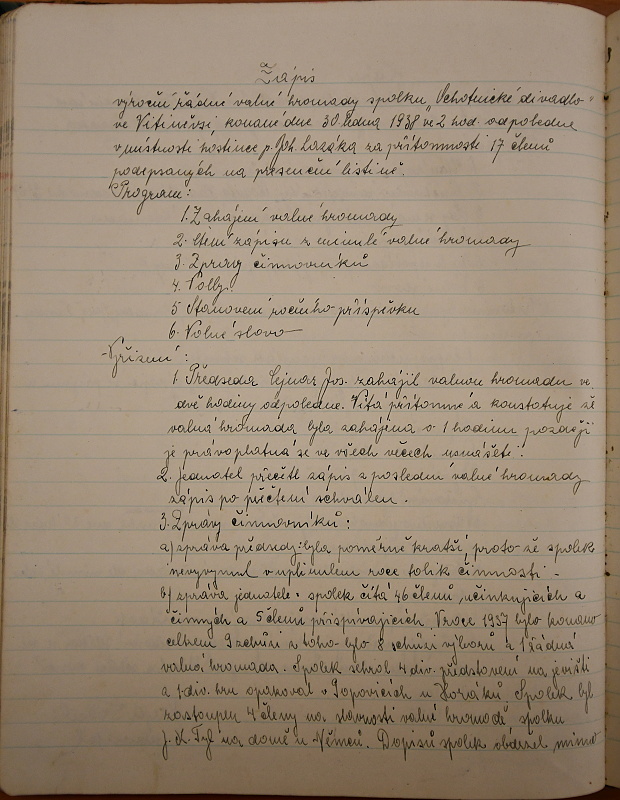 Zápis
výroční řádné valné hromady spolku „Ochotnické divadlo"
ve Vitiněvsi, konané dne 30 ledna 1938 ve 2 hod. odpoledne
v místnosti hostince p. Joh. Lazáka za přítomnosti 17 členů
podepsaných na presenční listině.
Program:
1. Zahájení valné hromady
2. čtení zápisu z minulé valné hromady
3. Zprávy činovníků
4. Volby.
5 Stanovení ročního příspěvku
6. Volné slovo
Vyřízení:
1. Předseda Cejnar Jos. zahájil valnou hromadu ve
dvě hodiny odpoledne. Vítá přítomné a konstatuje že
valná hromada byla zahájena o 1 hodinu později
je právoplatná se ve všech věcech usnášeti.
2. Jednatel přečetl zápis z poslední valné hromady
zápis po přečtení schválen.
3. Zprávy činovníků:
a) zpráva předsedy: byla poměrně kratší, proto že spolek
nevyvynul v uplinulem roce tolik činnosti.
b) zpráva jednatele: spolek čítá 46 členů, učinkujicich a
činných a 5 členů přispívajicich. V roce 1937 bylo konano
celkem 9 schůzi z toho bylo 8 schůzi výborů a 1 řádná
valná hromada. Spolek sehrál 4 div. představení na jevišti
a 1 div. hru opakoval v Popovicích u Horáků. Spolek byl
zastoupen 4 členy na slavnosti valné hromadě spolku
J. K. Tyl na domě u Němců. Dopisů spolek obdržel mimo